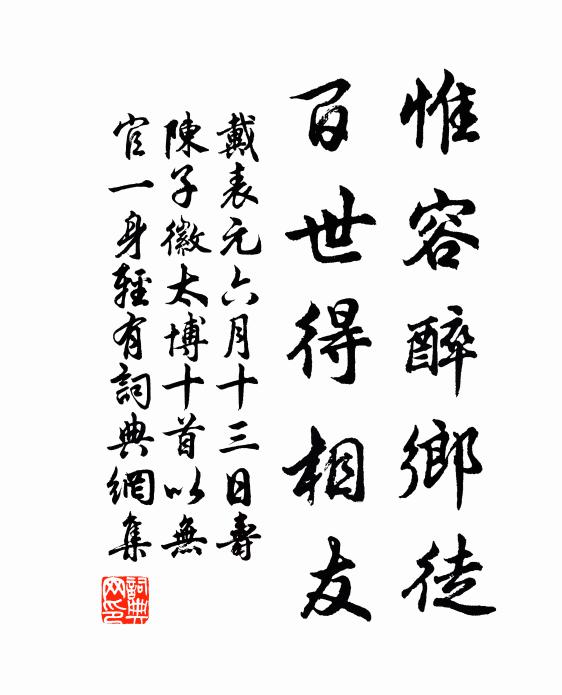 惟容醉鄉徒
百世得相友
戴表元六月十三日壽
陳子徽太博十首以無
官一身輕有詞典網集
詞典網印